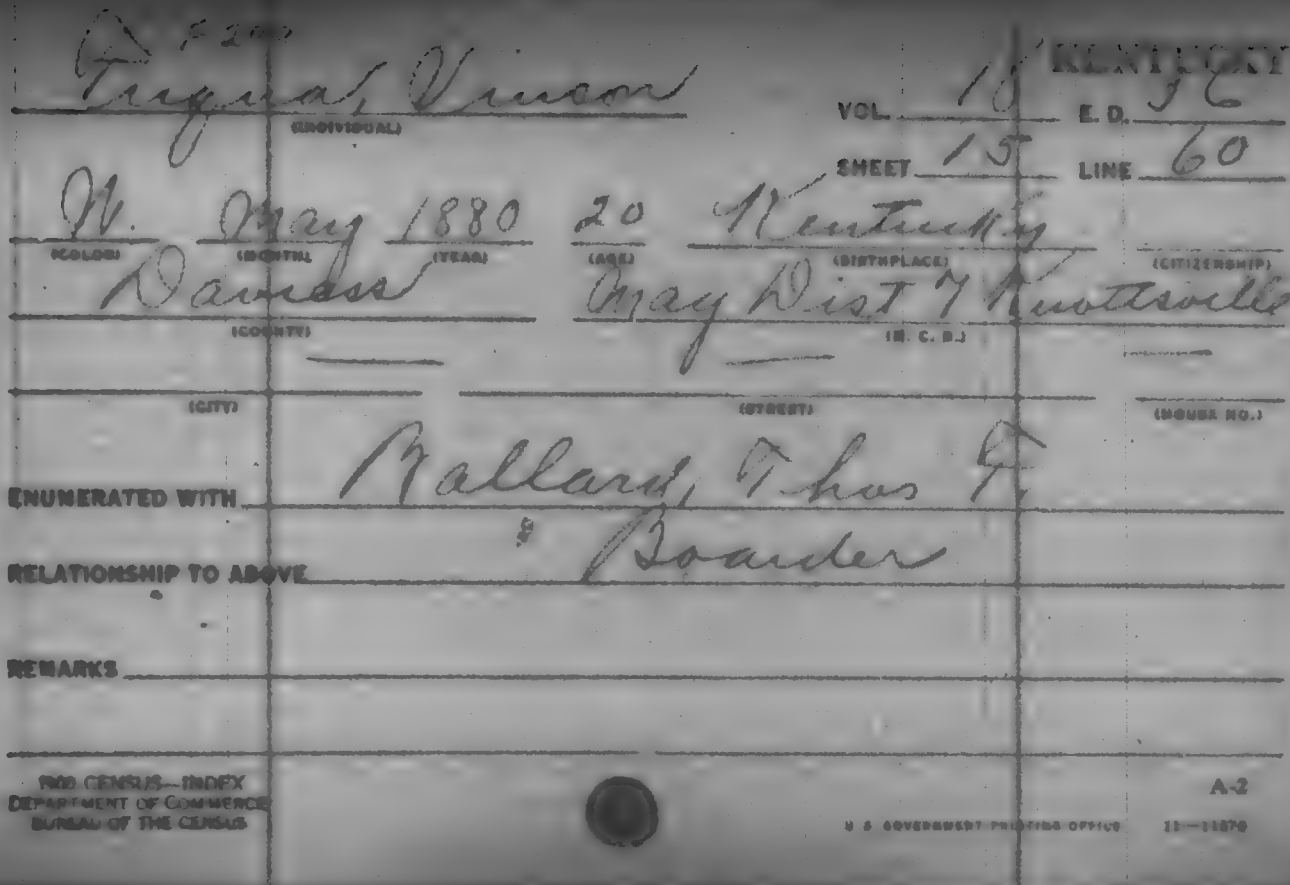 F 200
Fuqua, Vinson
KENTUCKY
VOL. 18 E. D. 36
(INDIVIDUAL)
SHEET 15 LINE 60
W. May 1880 20 Kentucky
(COLOR) (MONTH) (YEAR) (AGE) (BIRTHPLACE) (CITIZENSHIP)
Daviess May Dist 7 Knottsville
(COUNTY) (M. C. D.)
— — —
(CITY) (STREET) (HOUSE NO.)
ENUMERATED WITH Ballard, Thos F.
RELATIONSHIP TO ABOVE Boarder
REMARKS
1900 CENSUS—INDEX
DEPARTMENT OF COMMERCE
BUREAU OF THE CENSUS
A-2
U S GOVERNMENT PRINTING OFFICE 11—11870